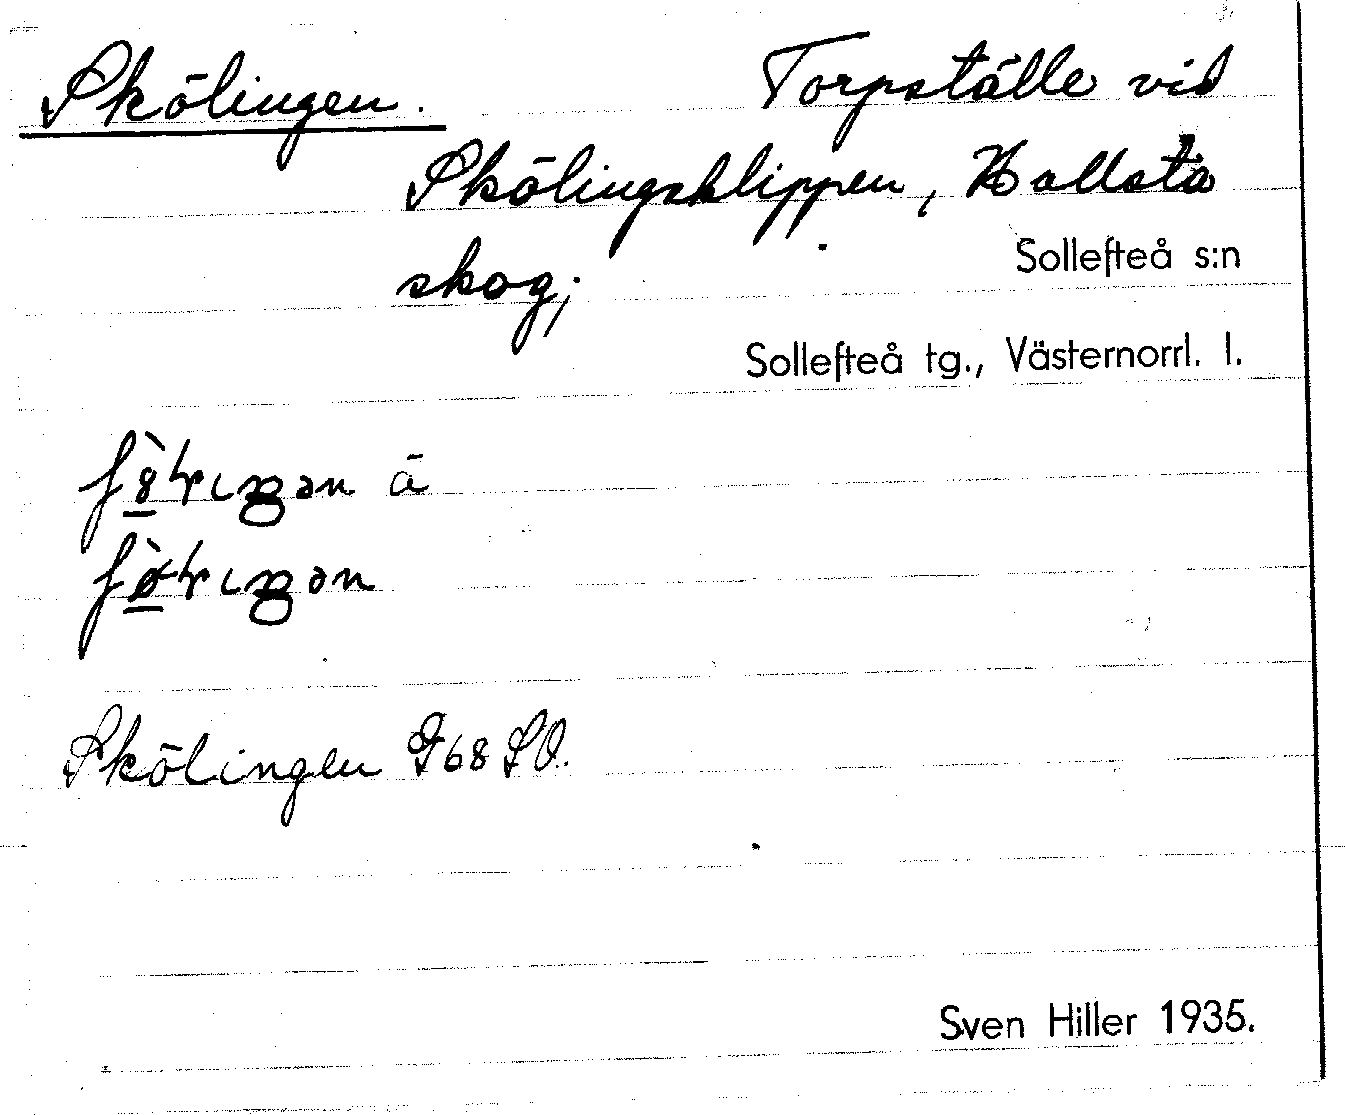 Skölingen. Torpställe vid
Skölingsklippen, Hallsta
skog; Sollefteå s:n
Sollefteå tg., Västernorrl. l.
Skölingen G68 SV.
Sven Hiller 1935.